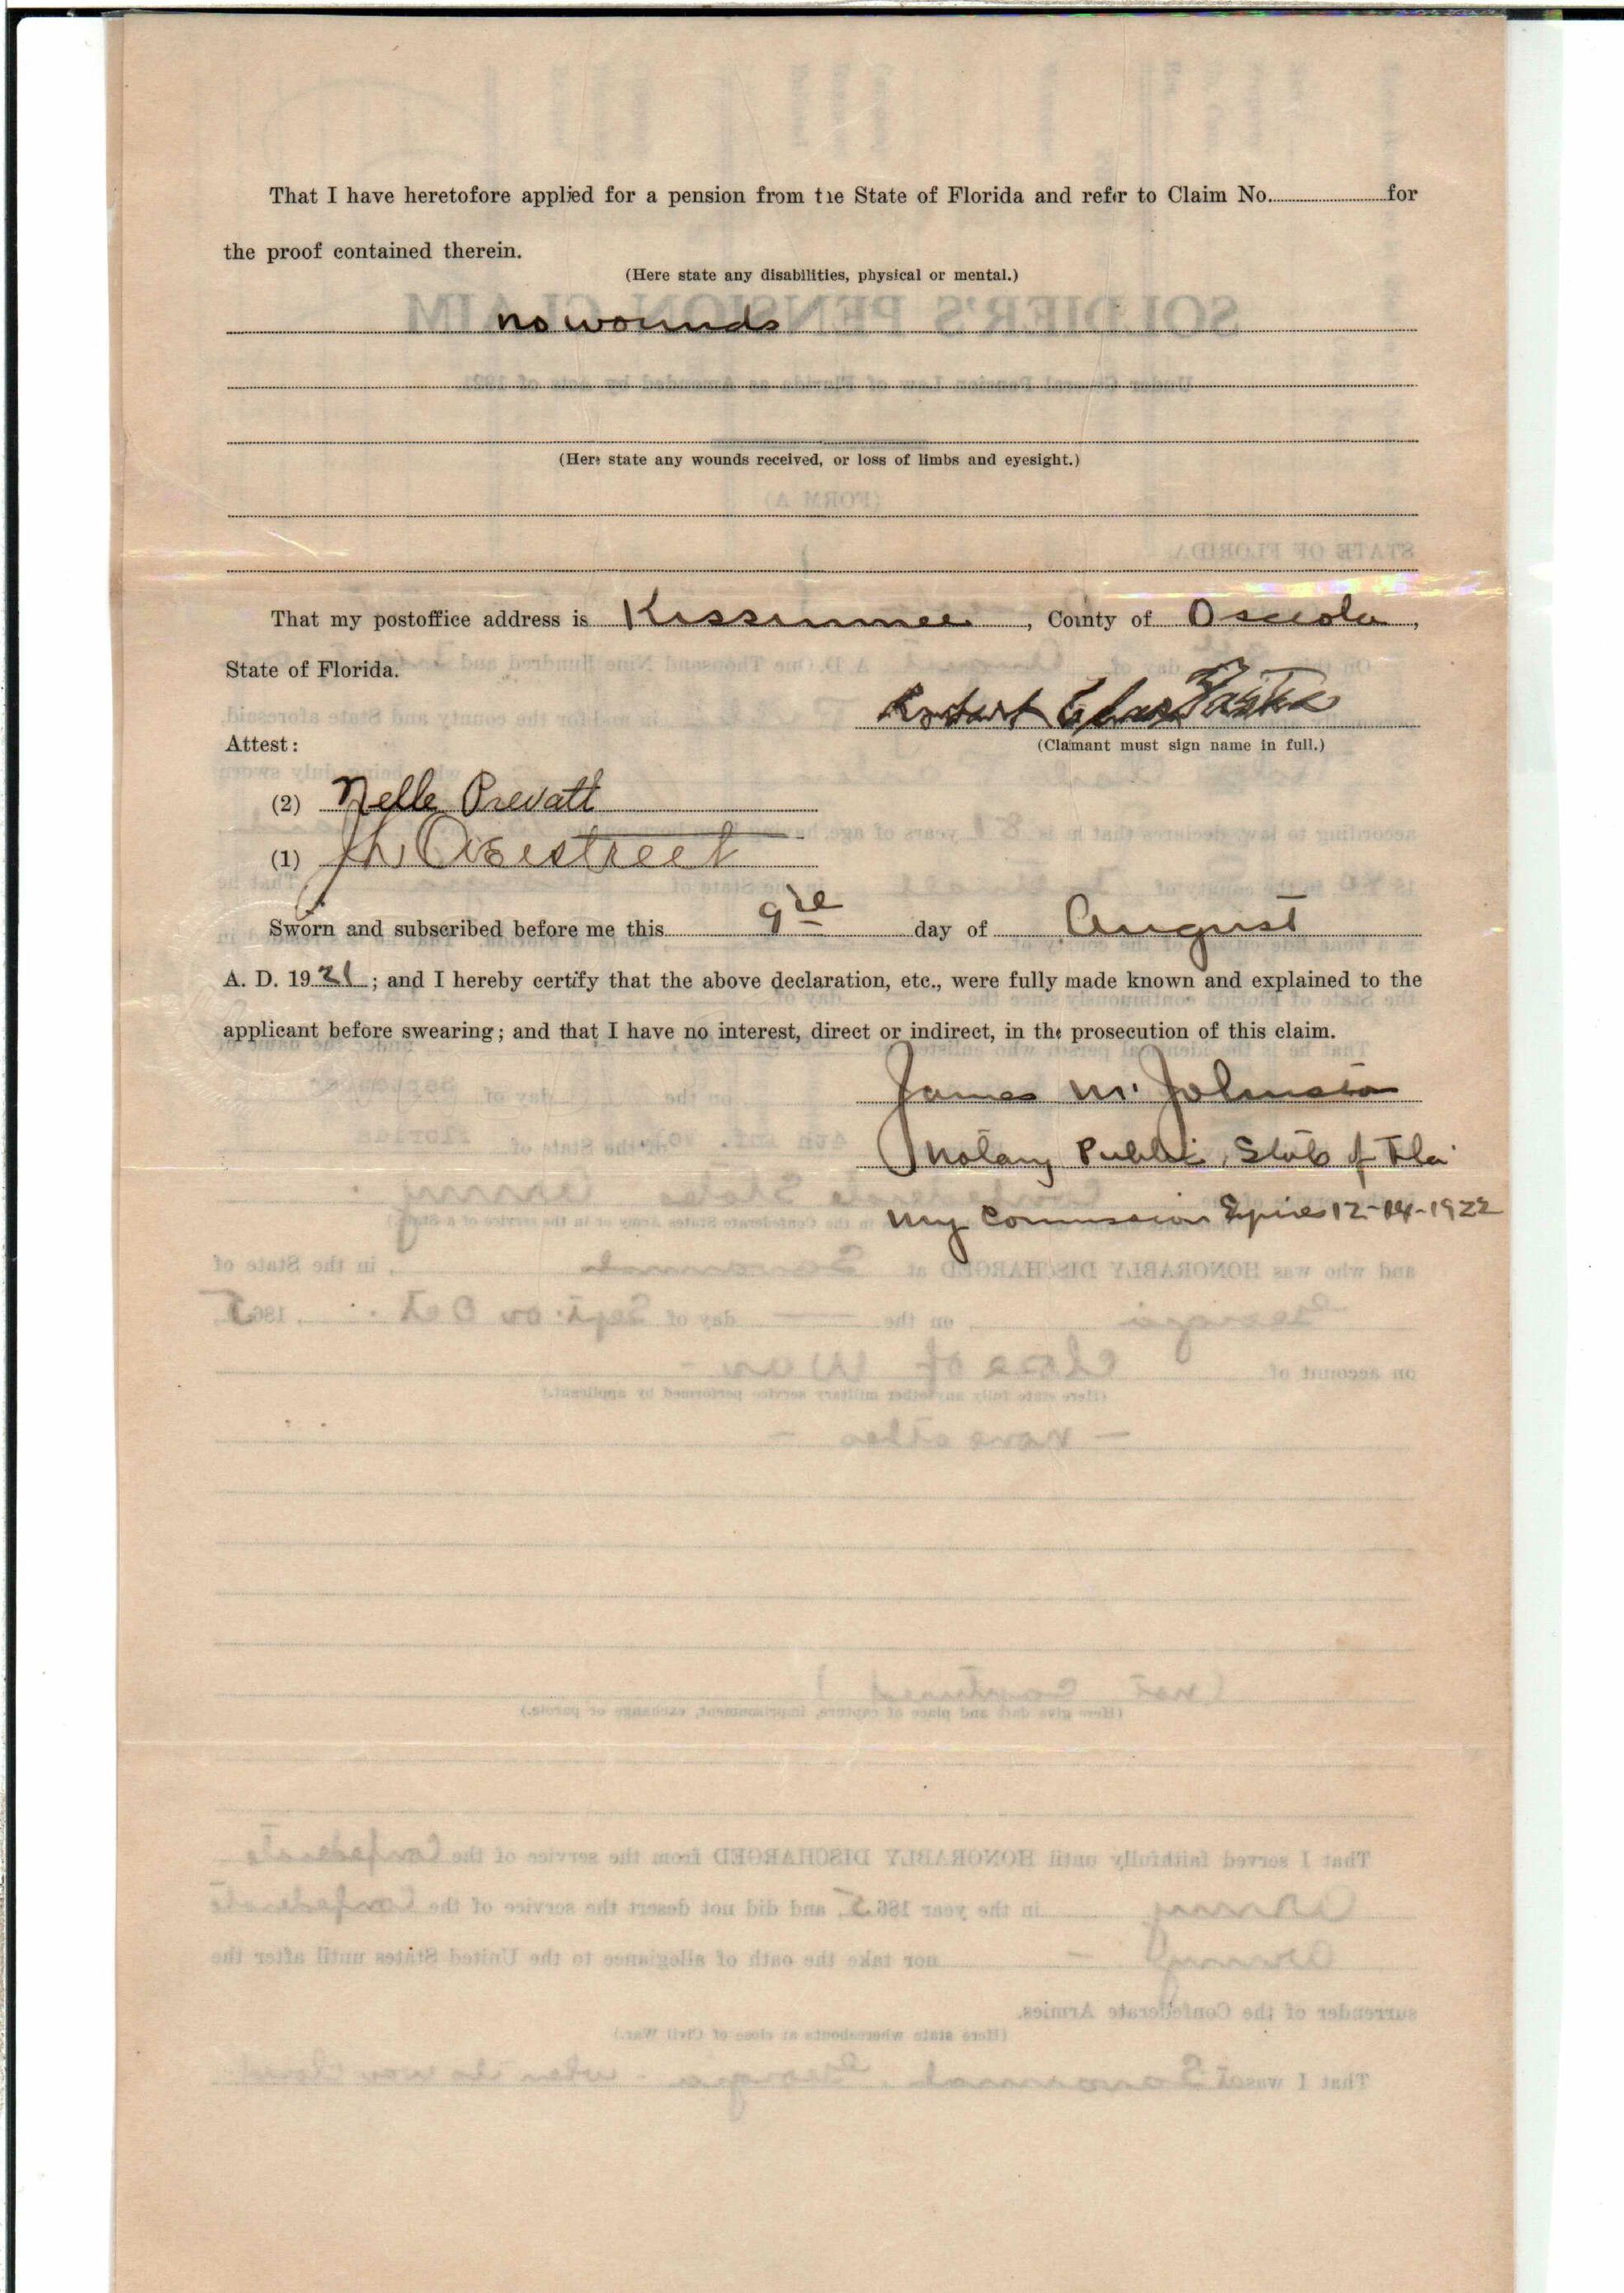 That I have heretofore applied for a pension from the State of Florida and refer to Claim No. for
the proof contained therein.
(Here state any disabilities, physical or mental.)
no wounds
(Here state any wounds received, or loss of limbs and eyesight.)
That my postoffice address is Kissimmee, County of Osceola,
State of Florida.
Robert
Attest:
(Claimant must sign name in full.)
(2) Nelle Prevatt
(1) Overstreet
Sworn and subscribed before me this 9th day of August
A. D. 1921; and I hereby certify that the above declaration, etc., were fully made known and explained to the
applicant before swearing; and that I have no interest, direct or indirect, in the prosecution of this claim.
James M. Johnston
Notary Public, State of Fla
My Commission Expires 12-14-1922